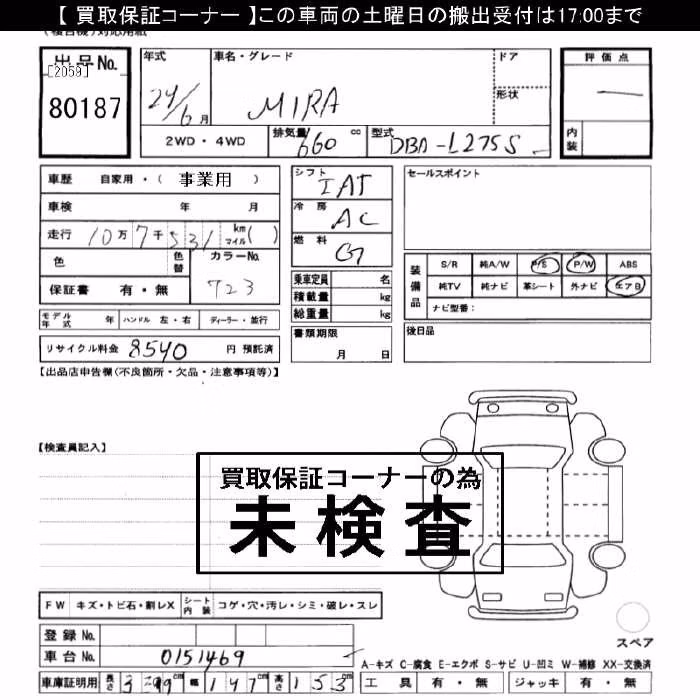 【 買取保証コーナー 】この車両の土曜日の搬出受付は17:00まで
出品No. [2059] 80187
年式 24/6月
車名・グレード MIRA
ドア
形状
評価点 —
内装
2WD・4WD
排気量 660 cc
型式 DBA-L275S
車歴 自家用・( 事業用 )
車検 年 月
走行 10万7千531 km マイル( )
色 色替 カラーNo. 723
保証書 有・無
シフト IAT
冷房 AC
燃料 G
乗車定員 名
積載量 kg
総重量 kg
書類期限 月 日
セールスポイント
装備品 S/R 純A/W P/S P/W ABS
純TV 純ナビ 革シート 外ナビ エアB
ナビ型番:
後日品
モデル年式 年 ハンドル 左・右 ディーラー・並行
リサイクル料金 8540 円 預託済
【出品店申告欄(不良箇所・欠品・注意事項等)】
【検査員記入】
買取保証コーナーの為
未検査
FW キズ・トビ石・割レX シート内装 コゲ・穴・汚レ・シミ・破レ・スレ
登録No.
車台No. 0151469
スペア
A-キズ C-腐食 E-エクボ S-サビ U-凹ミ W-補修 XX-交換済
車庫証明用 長さ 339cm 幅 147cm 高さ 153cm
工具 有・無 ジャッキ 有・無